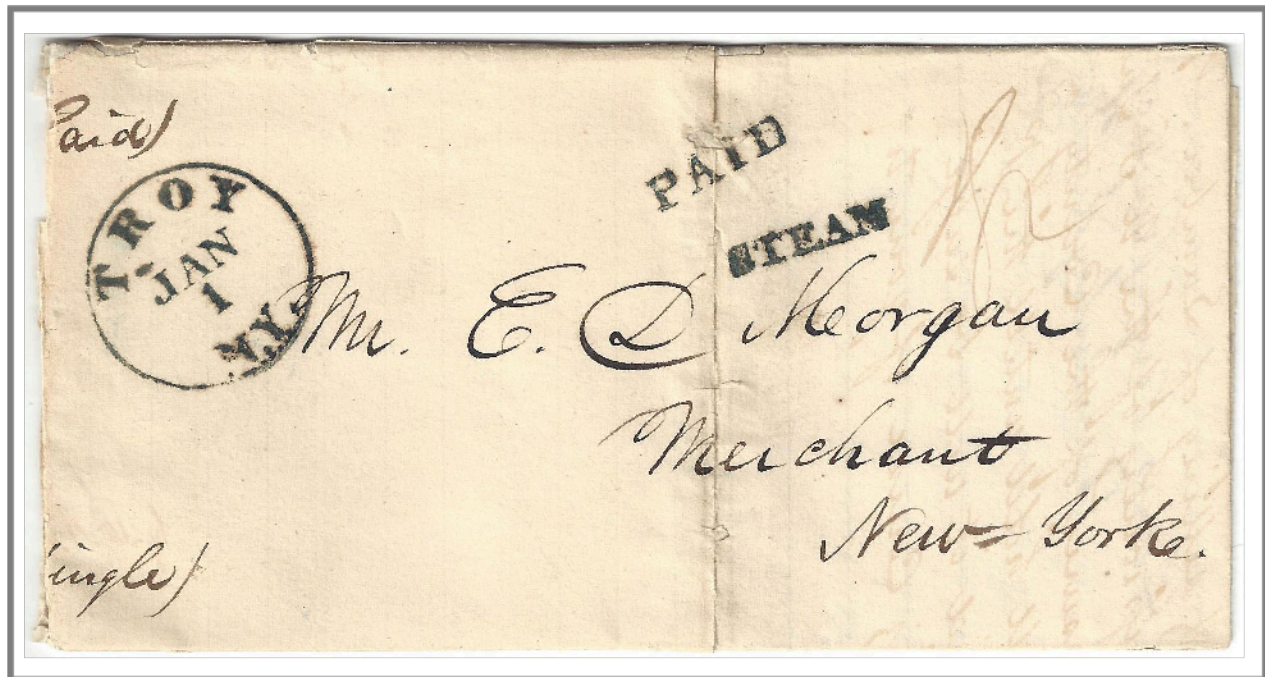 Paid)
TROY
JAN
1
N.Y.
PAID
STEAM
Mr. E. D Morgan
Merchant
New-York.
ingle)